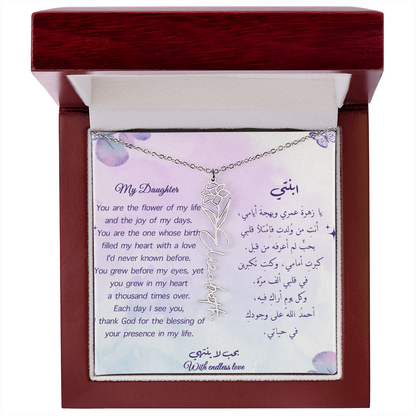 My Daughter
You are the flower of my life
and the joy of my days.
You are the one whose birth
filled my heart with a love
I'd never known before.
You grew before my eyes, yet
you grew in my heart
a thousand times over.
Each day I see you,
thank God for the blessing of
your presence in my life.
ابنتي
يا زهرة عمري وبهجة أيامي،
أنتِ من وُلدت فامتلأ قلبي
بحبٍّ لم أعرفه من قبل.
كبرتِ أمامي، وكنت تكبرين
في قلبي ألف مرّة.
وكل يوم أراكِ فيه،
أحمدُ اللهَ على وجودكِ
في حياتي.
بحب لا ينتهي
With endless love